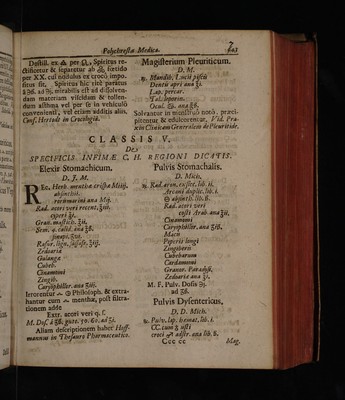 Polychrestæ Medica.
Destill. ex & separetur ab fœtido
per XX. cui nodulus ex croci impo-
situs sit. Spiritus hic rite paratus
mirabilis est ad dissolven-
dam materiam viscidam & tollen-
dum asthma vel per se in vehiculo
convenienti, vel etiam additis aliis.
Conf. Hertodt in Crocologiâ.
Magisterium Pleuriticum.
D. M.
Mandib. Lucii piscis
Dentis apri ana
Lap. percar.
Tal. leporin.
Ocul. ana
Solvantur in menstruo noto, præci-
pitentur & edulcorentur. Vid. Pra-
xin Clinicam Generalem de Pleuritide.
CLASSIS V.
DE
SPECIFICIS INFIMÆ C. H. REGIONI DICATIS.
Elexir Stomachicum.
D. J. M.
REc. Herb. menthæ crispæ Miiij.
absinthii.
rorismarini ana Mij.
Rad. acori veri recent.
cyperi
Gran. mastich.
Sem. 4. calid. ana
sinapi.
Rasur. lign. sassafr.
Zedoariæ
Galangæ
Cubeb.
Cinamomi
Zingib.
Caryophiller. ana
Irrorentur Philosoph. & extra-
hantur cum menthæ, post filtra-
tionem adde
Extr. acori veri q. s.
M. Dos. à gutt. 50. 60. ad
Aliam descriptionem habet Hoff-
mannus in Thesauro Pharmaceutico.
Pulvis Stomachalis.
D. Mich.
Rad. aron. exsicc. lib. ii.
Arcani duplic. lib. i.
absinth. lib. ß.
Rad. acori veri
costi Arab. ana
Cinamomi
Caryophiller. ana
Macis
Piperis longi
Zingiberis
Cubebarum
Cardamomi
Granor. Paradisi,
Zedoariæ ana
M. F. Pulv. Dosis
ad
Pulvis Dysentericus,
D. D. Mich.
Pulv. lap. hæmat. lib. i.
CC. cum usti
croci adstr. ana lib. ß.
Ccc cc
Mag.